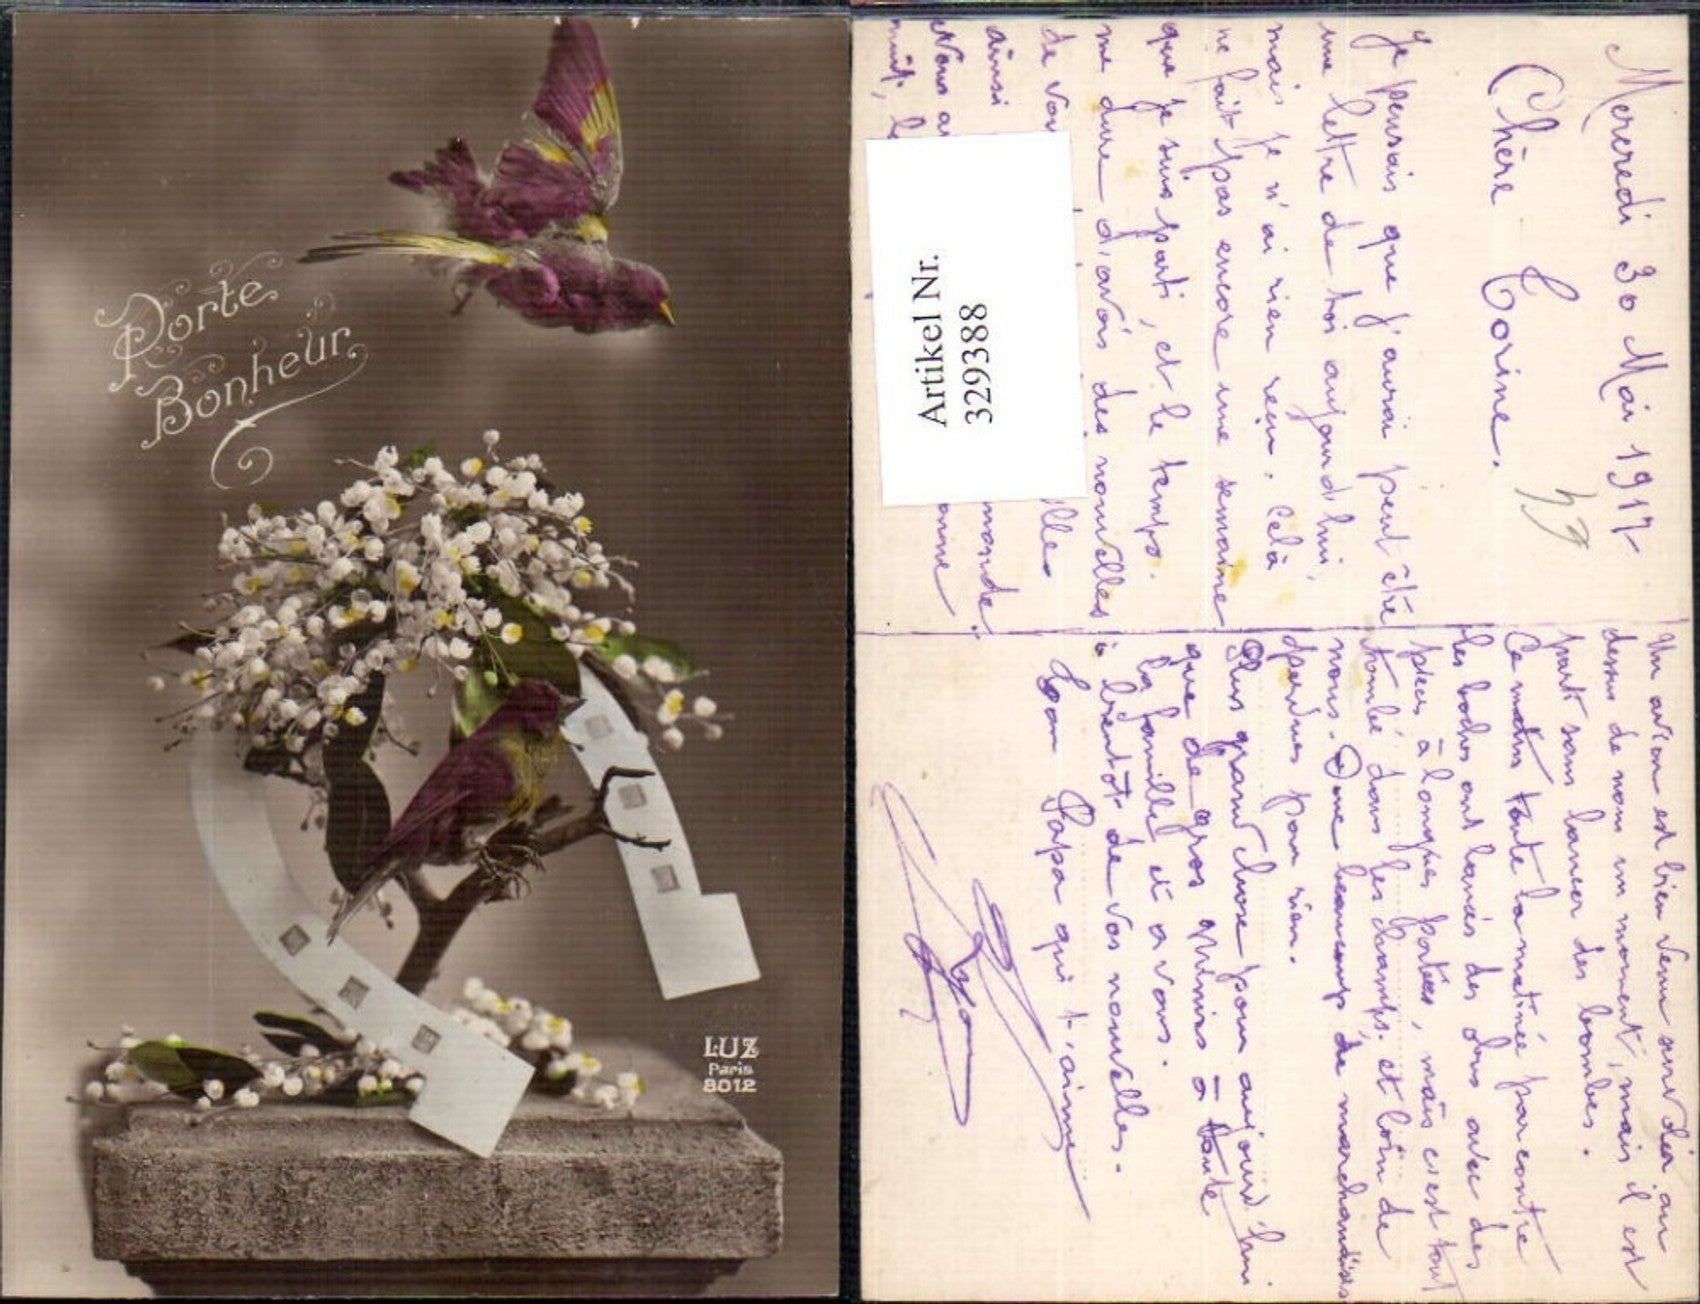 Porte
Bonheur
LUZ
Paris
8012
Artikel Nr.
3293388
Mercredi 30 Mai 1917
Chère Corine.
Je pensais que j'aurai peut être
une lettre de toi aujourd'hui,
mais je n'ai rien reçu. Celà
ne fait pas encore une semaine
que je suis parti, et le temps
me dure d'avoir des nouvelles
de vou
ainsi monde.
Nous a
nuit,
Un avion est bien venu survoler au
dessus de nous un moment, mais il est
parti sans lancer des bombes.
Ce matin toute la matinée par contre
les boches ont lancés des obus avec des
pièces à longues portées, mais c'est tout
tombé dans les champs, et loin de
nous. Donc beaucoup de marchandises
perdues pour rien.
Plus grand chose pour aujourd'hui
que de gros mimis à toute
la famille et a vous.
à bientôt de vos nouvelles.
Ton Papa qui t'aime